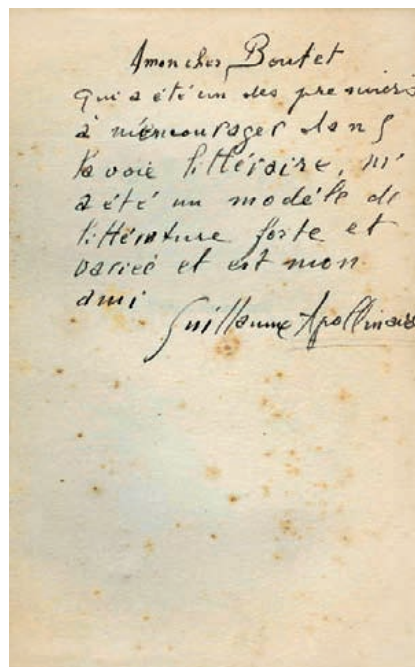 A mon cher Boutet
qui a été un des premiers
à m'encourager dans
la voie littéraire, m'
a été un modèle de
littérature forte et
variée et est mon
ami
Guillaume Apollinaire